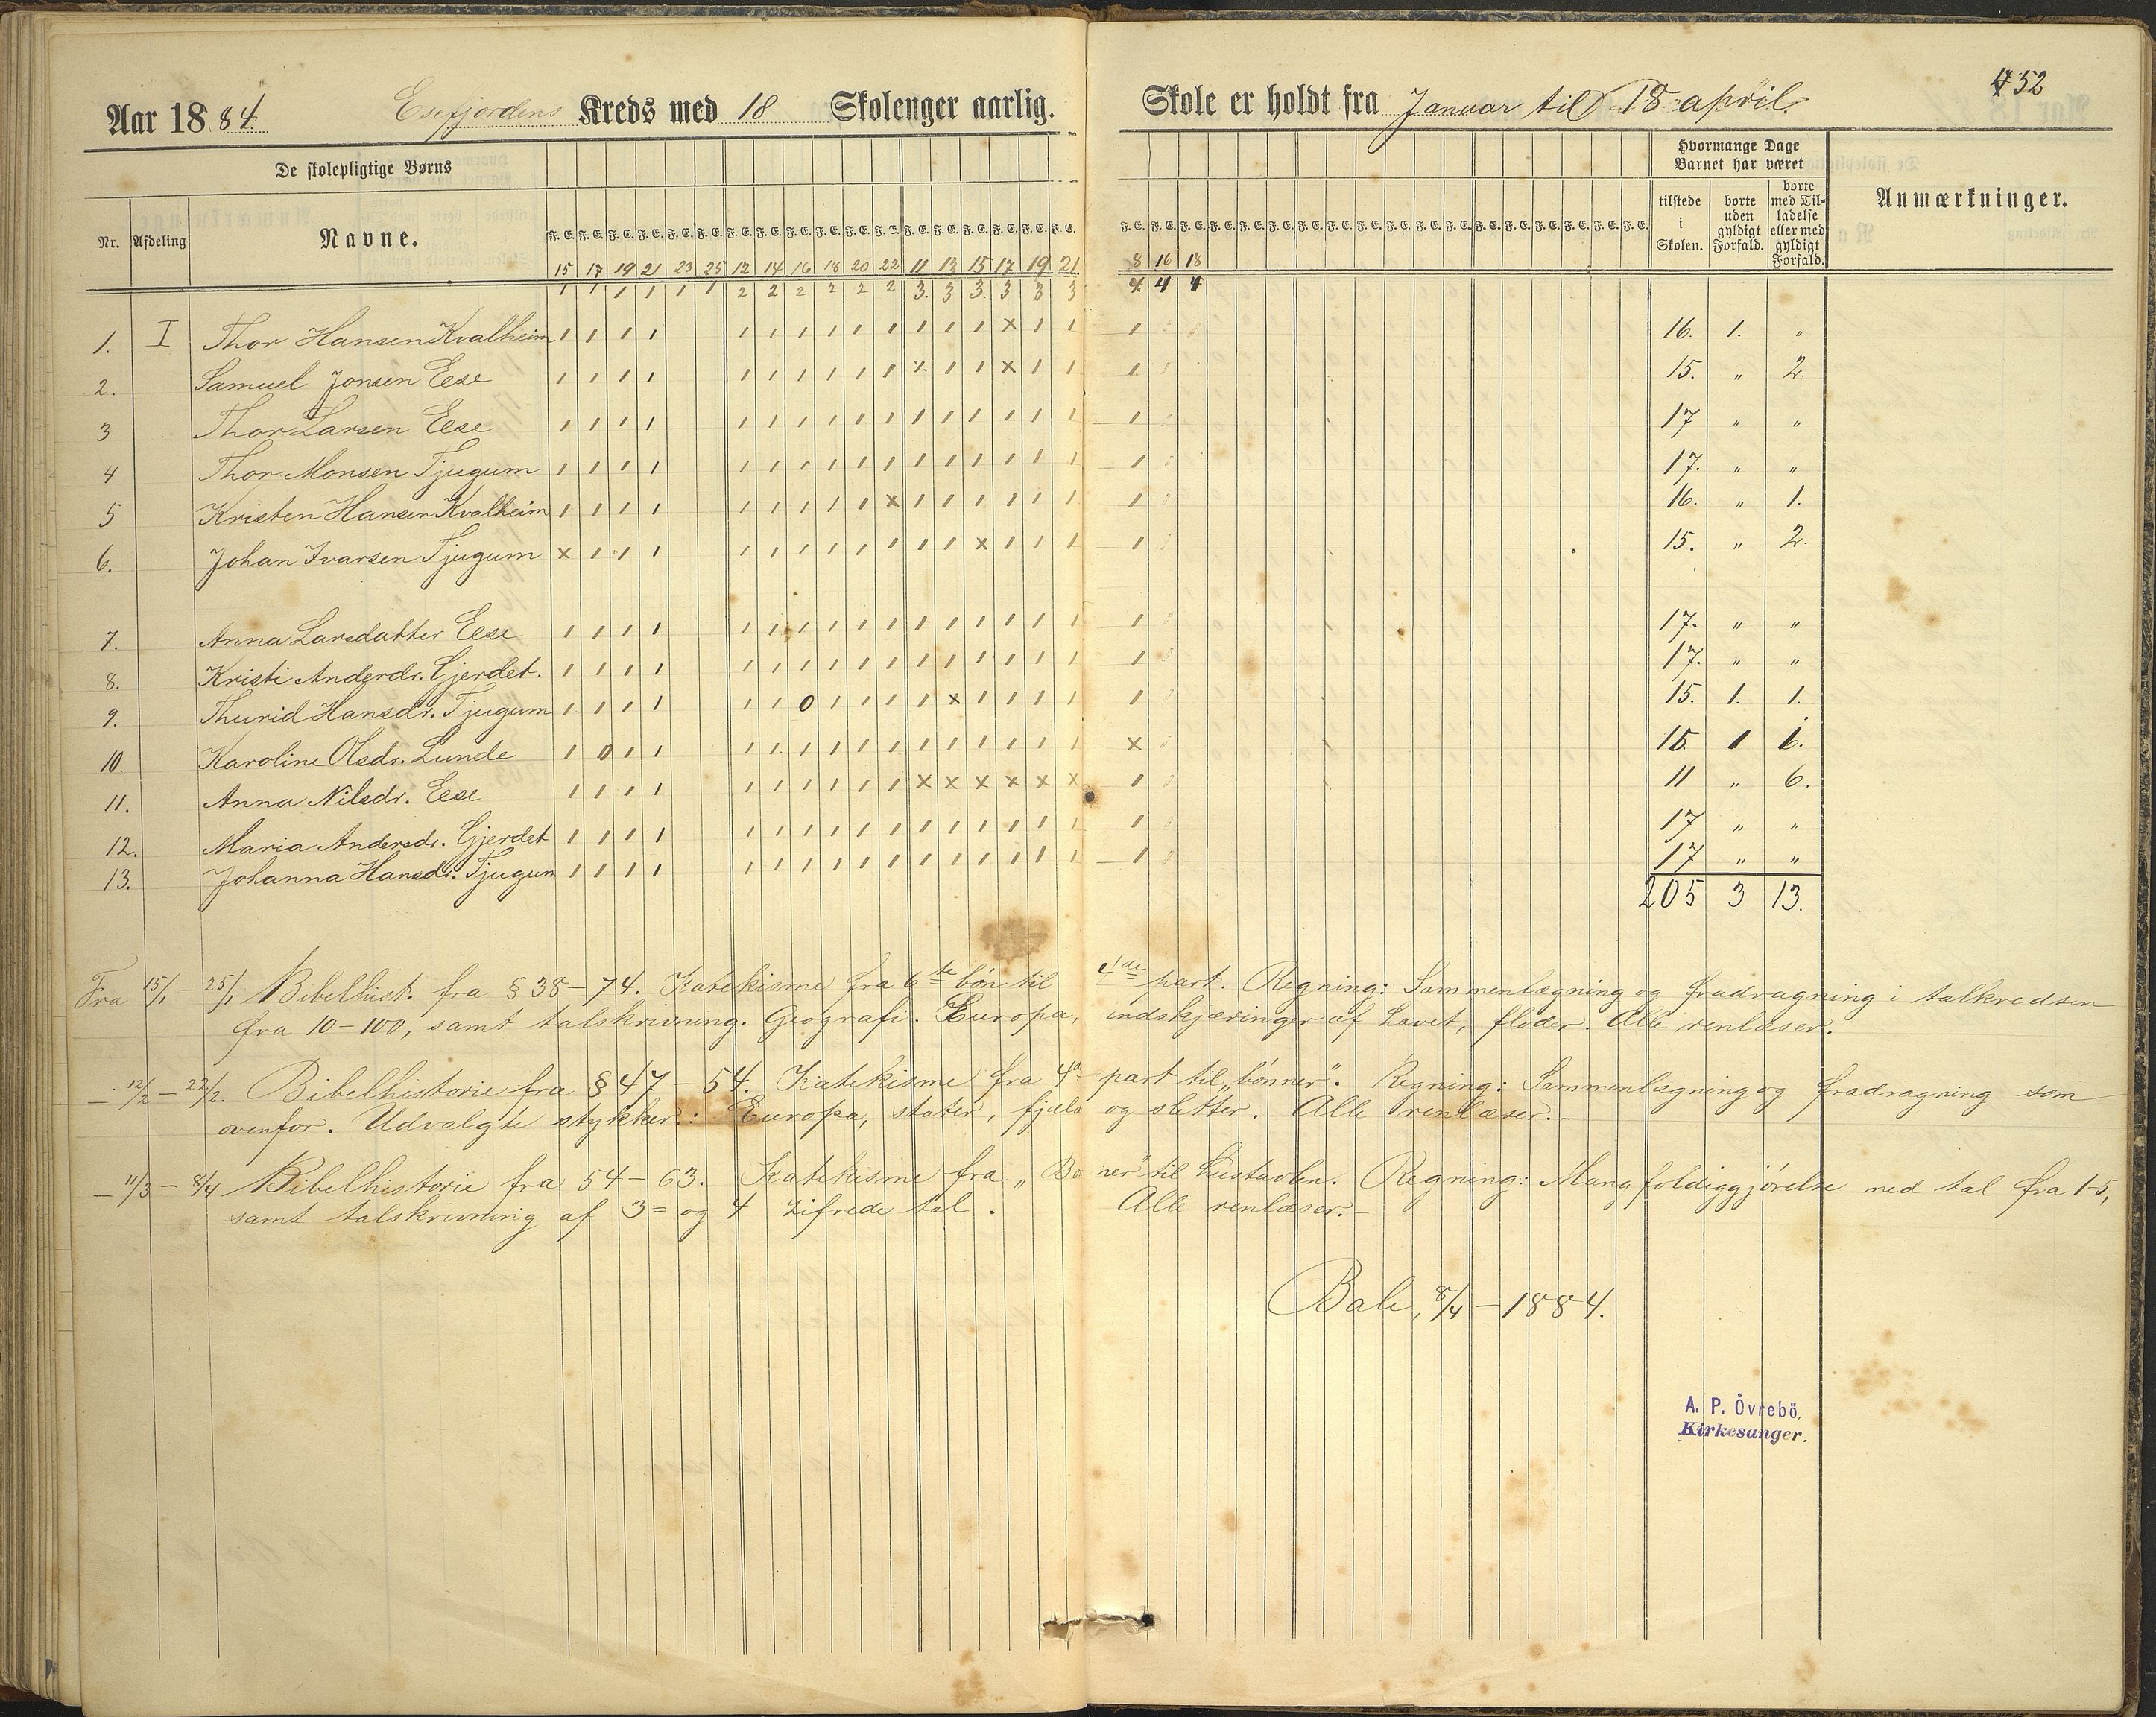 Aar 1884 Esefjordens Kreds med 18 Skolenger aarlig. Skole er holdt fra Januar til 18 april. 52
De skolepligtige Børns
Hvormange Dage Barnet har været
Nr. Afdeling Navne.
F. E. F. E. F. E. F. E. F. E. F. E. F. E. F. E. F. E. F. E. F. E. F. E. F. E. F. E. F. E. F. E. F. E. F. E. F. E. F. E. F. E. F. E. F. E. F. E. F. E. F. E. F. E. F. E. F. E. F. E. F. E. F. E. F. E. F. E. F. E. F. E.
tilstede i Skolen.
borte uden gyldigt Forfald.
borte med Tilladelse eller med gyldigt Forfald.
Anmærkninger.
15 17 19 21 23 25 12 14 16 18 20 22 11 13 15 17 19 21 8 16 18
1 1 1 1 1 1 2 2 2 2 2 2 3. 3 3. 3 3 3 4. 4 4
1. I Thor Hansen Kvalheim 1 1 1 1 1 1 1 1 1 1 1 1 1 x 1 1 1 16. 1. "
2. Samuel Jonsen Eese 1 1 1 1 1 1 1 1 1 1 x 1 1 x 1 1 1 15. " 2.
3 Thor Larsen Eese 1 1 1 1 1 1 1 1 1 1 1 1 1 1 1 1 1 17 " "
4 Thor Monsen Tjugum 1 1 1 1 1 1 1 1 1 1 1 1 1 1 1 1 1 17. " "
5 Kristen Hansen Kvalheim 1 1 1 1 1 1 1 1 1 x 1 1 1 1 1 1 1 16. " 1.
6. Johan Ivarsen Tjugum x 1 1 1 1 1 1 1 1 1 1 1 x 1 1 1 1 15. " 2.
7. Anna Larsdatter Eese 1 1 1 1 1 1 1 1 1 1 1 1 1 1 1 1 1 17. " "
8. Kristi Andersdr. Gjerdet. 1 1 1 1 1 1 1 1 1 1 1 1 1 1 1 1 1 17. " "
9. Thurid Hansdr. Tjugum 1 1 1 1 1 1 0 1 1 1 1 x 1 1 1 1 1 15. 1. 1.
10. Karoline Olsdr. Lunde 1 0 1 1 1 1 1 1 1 1 1 1 1 1 1 1 x 15. 1 1.
11. Anna Nilsdr. Eese 1 1 1 1 1 1 1 1 1 1 x x x x x x 1 11 " 6.
12. Maria Andersdr. Gjerdet 1 1 1 1 1 1 1 1 1 1 1 1 1 1 1 1 1 17 " "
13. Johanna Hansdr. Tjugum 1 1 1 1 1 1 1 1 1 1 1 1 1 1 1 1 1 17 " "
205 3 13.
Fra 15/1 – 25/1 Bibelhist. fra § 38 – 74. Katekisme fra 6te bön til 4de part. Regning: Sammenlægning og fradragning i talkredsen
fra 10–100, samt talskrivning. Geografi. Europa, indskjæringer af havet, floder. Alle renlæser.
– 12/2 – 22/2. Bibelhistorie fra § 47 – 54. Katekisme fra 4de part til „bönner". Regning: Sammenlægning og fradragning som
ovenfor. Udvalgte stykker.: Europa, stater, fjeld og sletter. Alle renlæser. –
– 11/3 – 8/4 Bibelhistorie fra 54 – 63. Katekisme fra „Bönner" til hustavlen. Regning: Mangfoldiggjörelse med tal fra 1–5,
samt talskrivning af 3= og 4 zifrede tal. Alle renlæser. –
Bale, 8/4 – 1884.
A. P. Övrebö,
Kirkesanger.